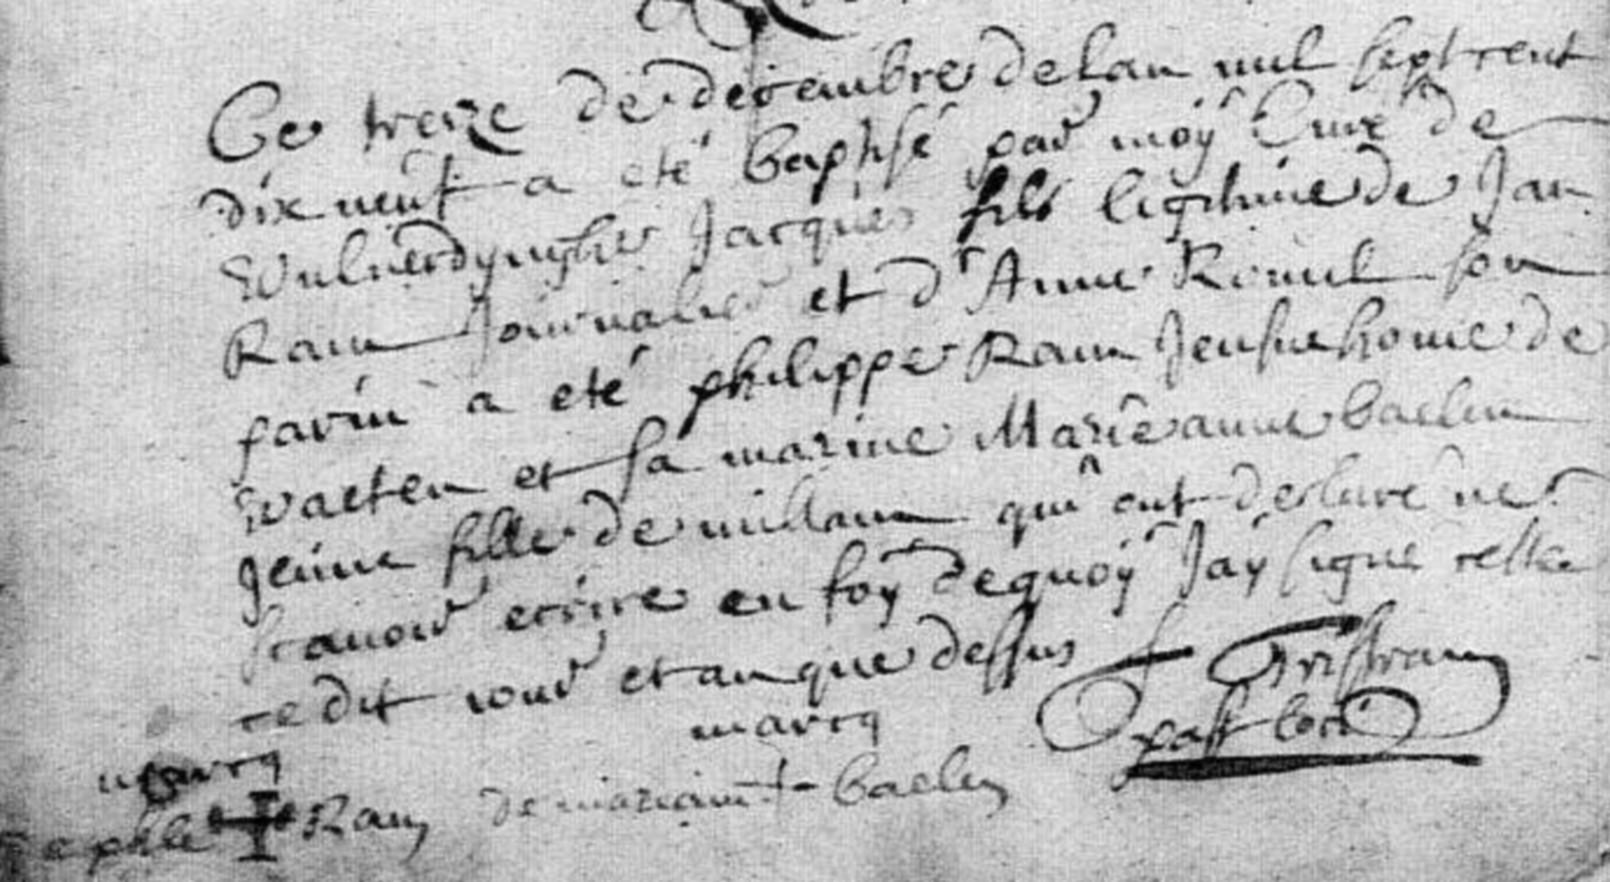 Ce treize de decembre de lan mil sept cent
dix neuf a eté baptisé par moÿ Curé de
Wulverdynghe Jacques fils legitime de Jan
Ram Journalier et d'Anne Revel son
parin a eté philippe Ram Jeusne home de
Waeten et sa marine Marie anne baelen
Jeune fille de millam qui ont declaré ne
scavoir ecrire en foÿ de quoÿ Jaÿ signe cette
ce dit iour et an que dessus f Tristram
marcq past loci
marcq
de phle Ram de mariann baelen